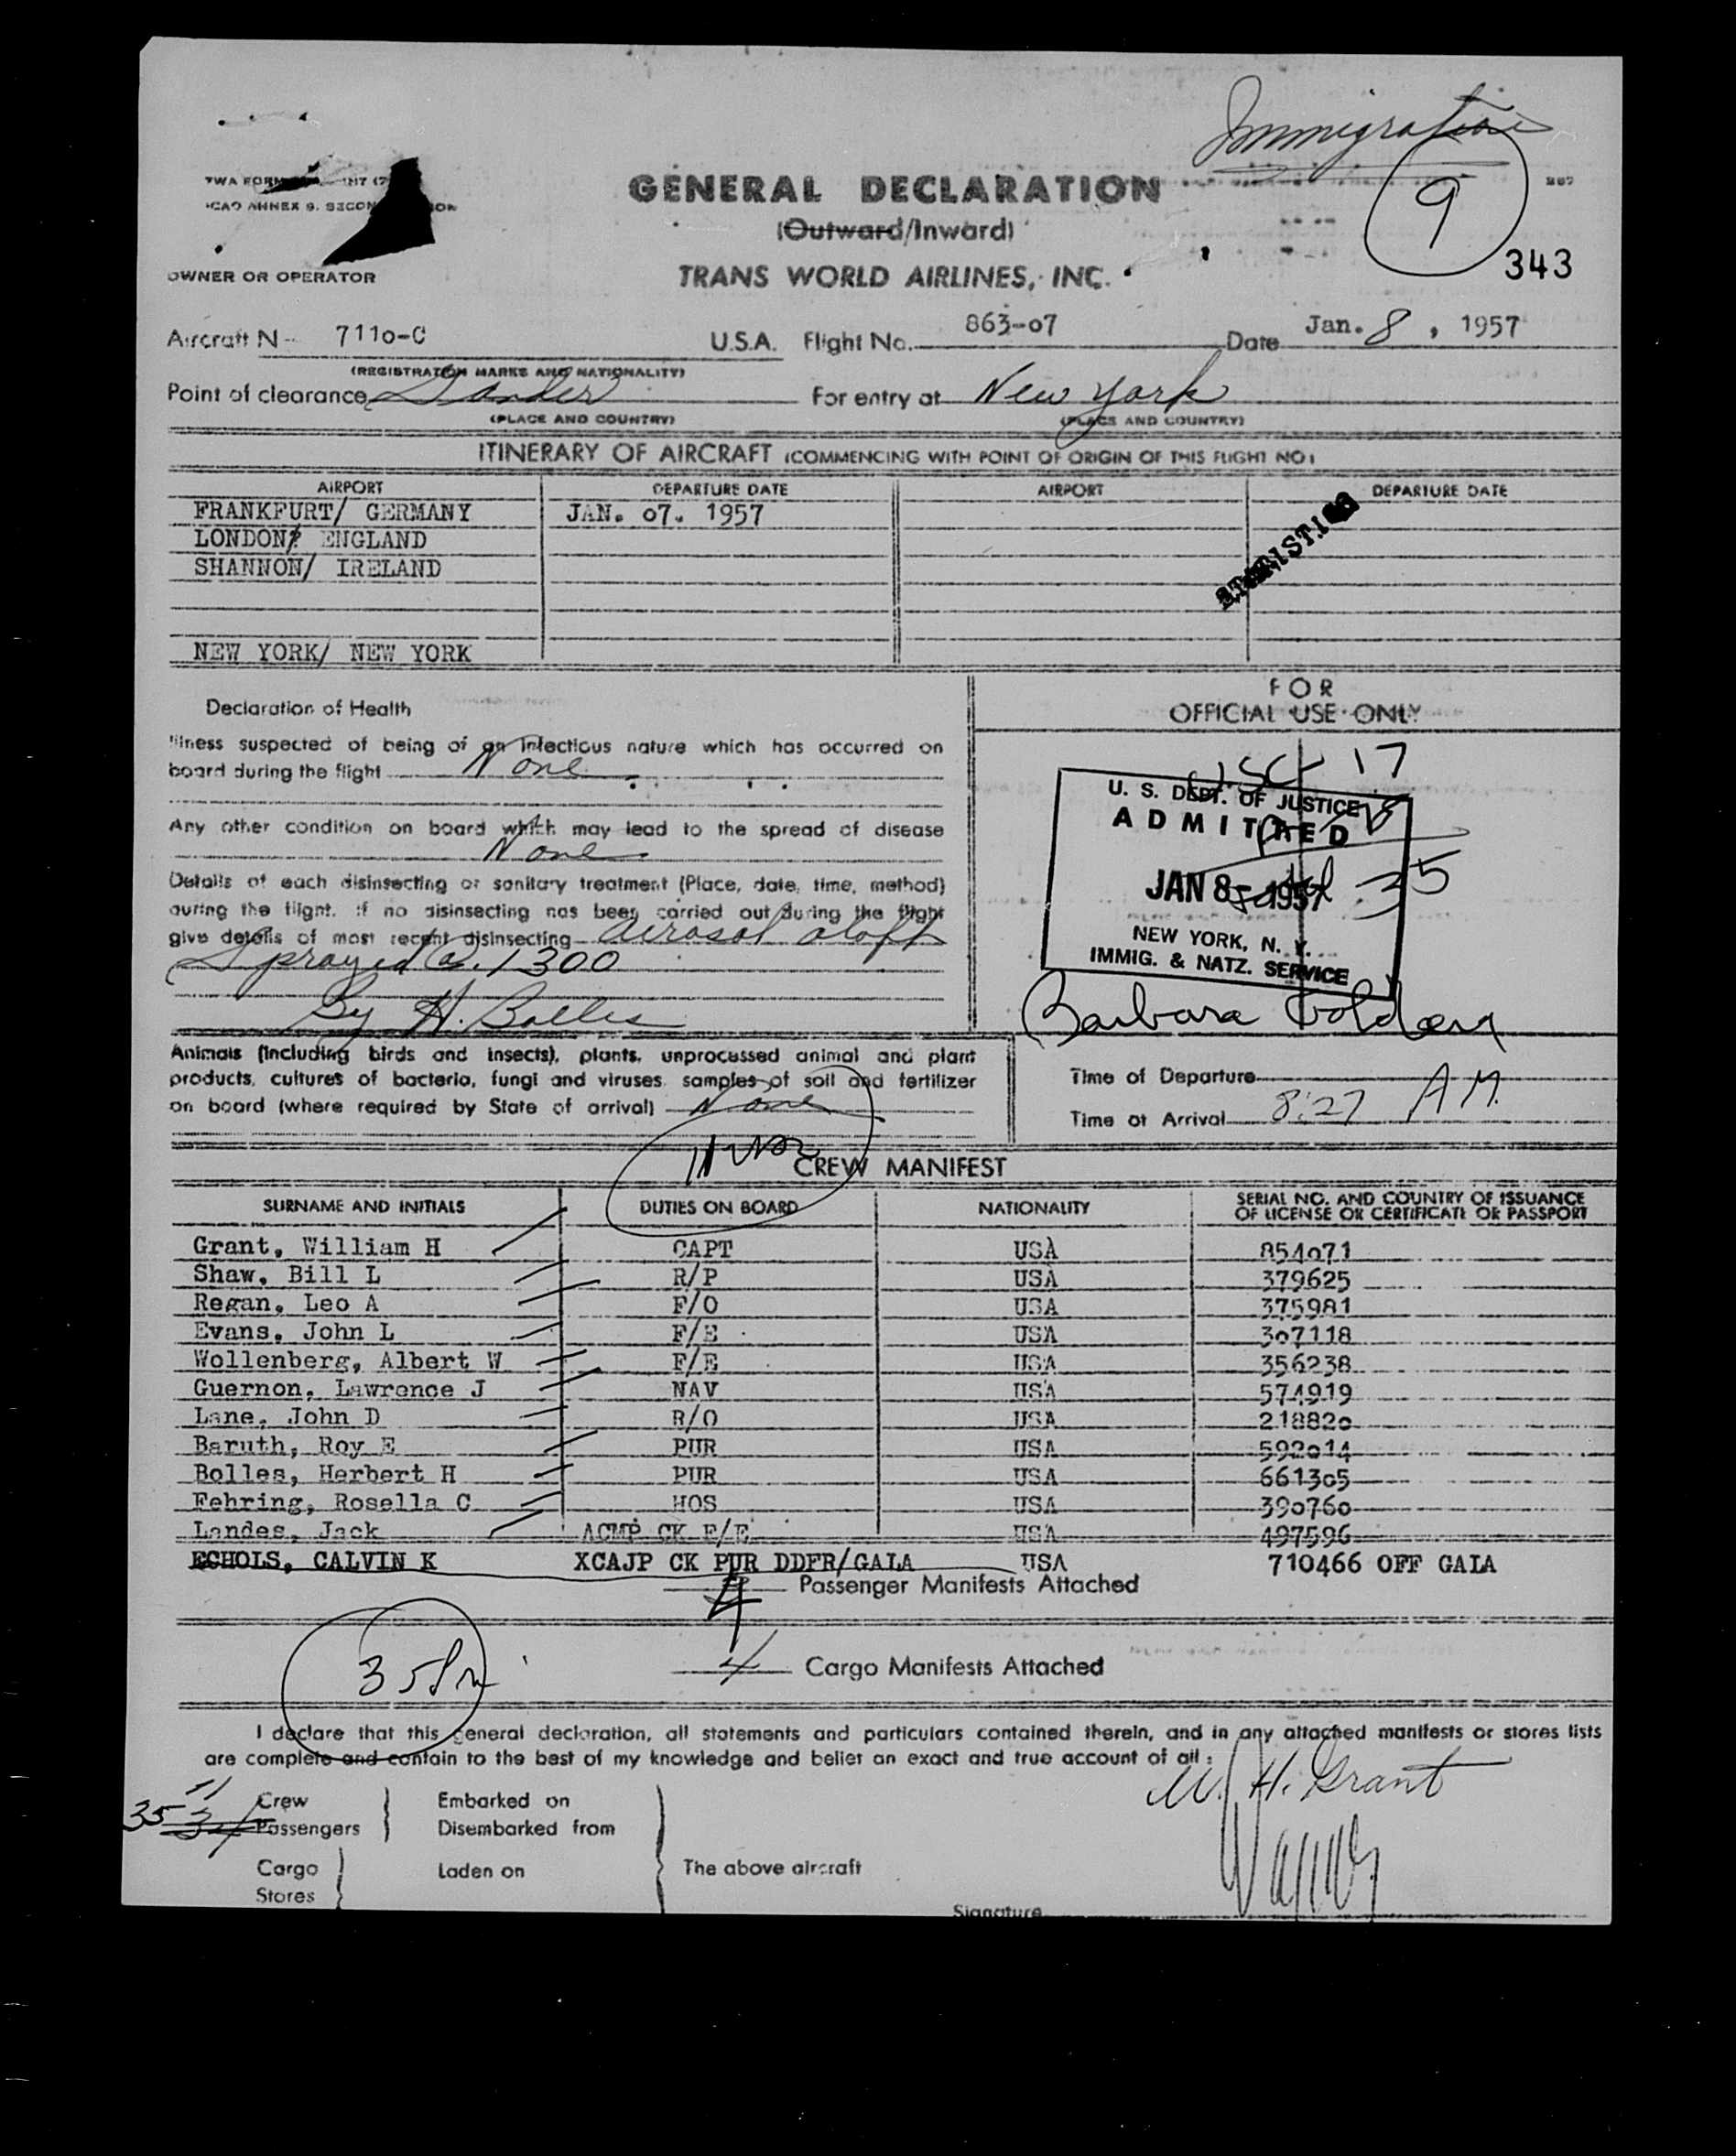 Immigration
9
GENERAL DECLARATION
(Outward/Inward)
343
OWNER OR OPERATOR
TRANS WORLD AIRLINES, INC.
Aircraft N- 7110-C U.S.A. Flight No. 863-07 Date Jan. 8, 1957
(REGISTRATION MARKS AND NATIONALITY)
Point of clearance Gander For entry at New York
(PLACE AND COUNTRY) (PLACE AND COUNTRY)
ITINERARY OF AIRCRAFT (COMMENCING WITH POINT OF ORIGIN OF THIS FLIGHT NO)
AIRPORT DEPARTURE DATE AIRPORT DEPARTURE DATE
FRANKFURT/ GERMANY JAN. 07. 1957
LONDON/ ENGLAND
SHANNON/ IRELAND
NEW YORK/ NEW YORK
Declaration of Health
Illness suspected of being of an infectious nature which has occurred on
board during the flight None
Any other condition on board which may lead to the spread of disease
None
Details of each disinsecting or sanitary treatment (Place, date, time, method)
during the flight. If no disinsecting has been carried out during the flight
give details of most recent disinsecting aerosol aloft
Sprayed @ 1300
By H. Bolles
FOR
OFFICIAL USE ONLY
USC 17
U. S. DEPT. OF JUSTICE
ADMITTED
JAN 8 1957
35
NEW YORK, N. Y.
IMMIG. & NATZ. SERVICE
Barbara Goldberg
Animals (including birds and insects), plants, unprocessed animal and plant
products, cultures of bacteria, fungi and viruses, samples of soil and fertilizer
on board (where required by State of arrival) None
Time of Departure
Time of Arrival 8:27 AM
CREW MANIFEST
SURNAME AND INITIALS DUTIES ON BOARD NATIONALITY SERIAL NO. AND COUNTRY OF ISSUANCE
OF LICENSE OR CERTIFICATE OR PASSPORT
Grant, William H CAPT USA 854071
Shaw, Bill L R/P USA 379625
Regan, Leo A F/O USA 375981
Evans, John L F/E USA 307118
Wollenberg, Albert W F/E USA 356238
Guernon, Lawrence J NAV USA 574919
Lane, John D R/O USA 218820
Baruth, Roy E PUR USA 592014
Bolles, Herbert H PUR USA 661305
Fehring, Rosella C HOS USA 390760
Landes, Jack ACMP CK F/E USA 497596
ECHOLS, CALVIN K XCAJP CK PUR DDFR/GALA USA 710466 OFF GALA
4 Passenger Manifests Attached
4 Cargo Manifests Attached
I declare that this general declaration, all statements and particulars contained therein, and in any attached manifests or stores lists
are complete and contain to the best of my knowledge and belief an exact and true account of all:
W. H. Grant
11 Crew Embarked on
35 34 Passengers Disembarked from
Cargo Laden on The above aircraft
Stores
Signature